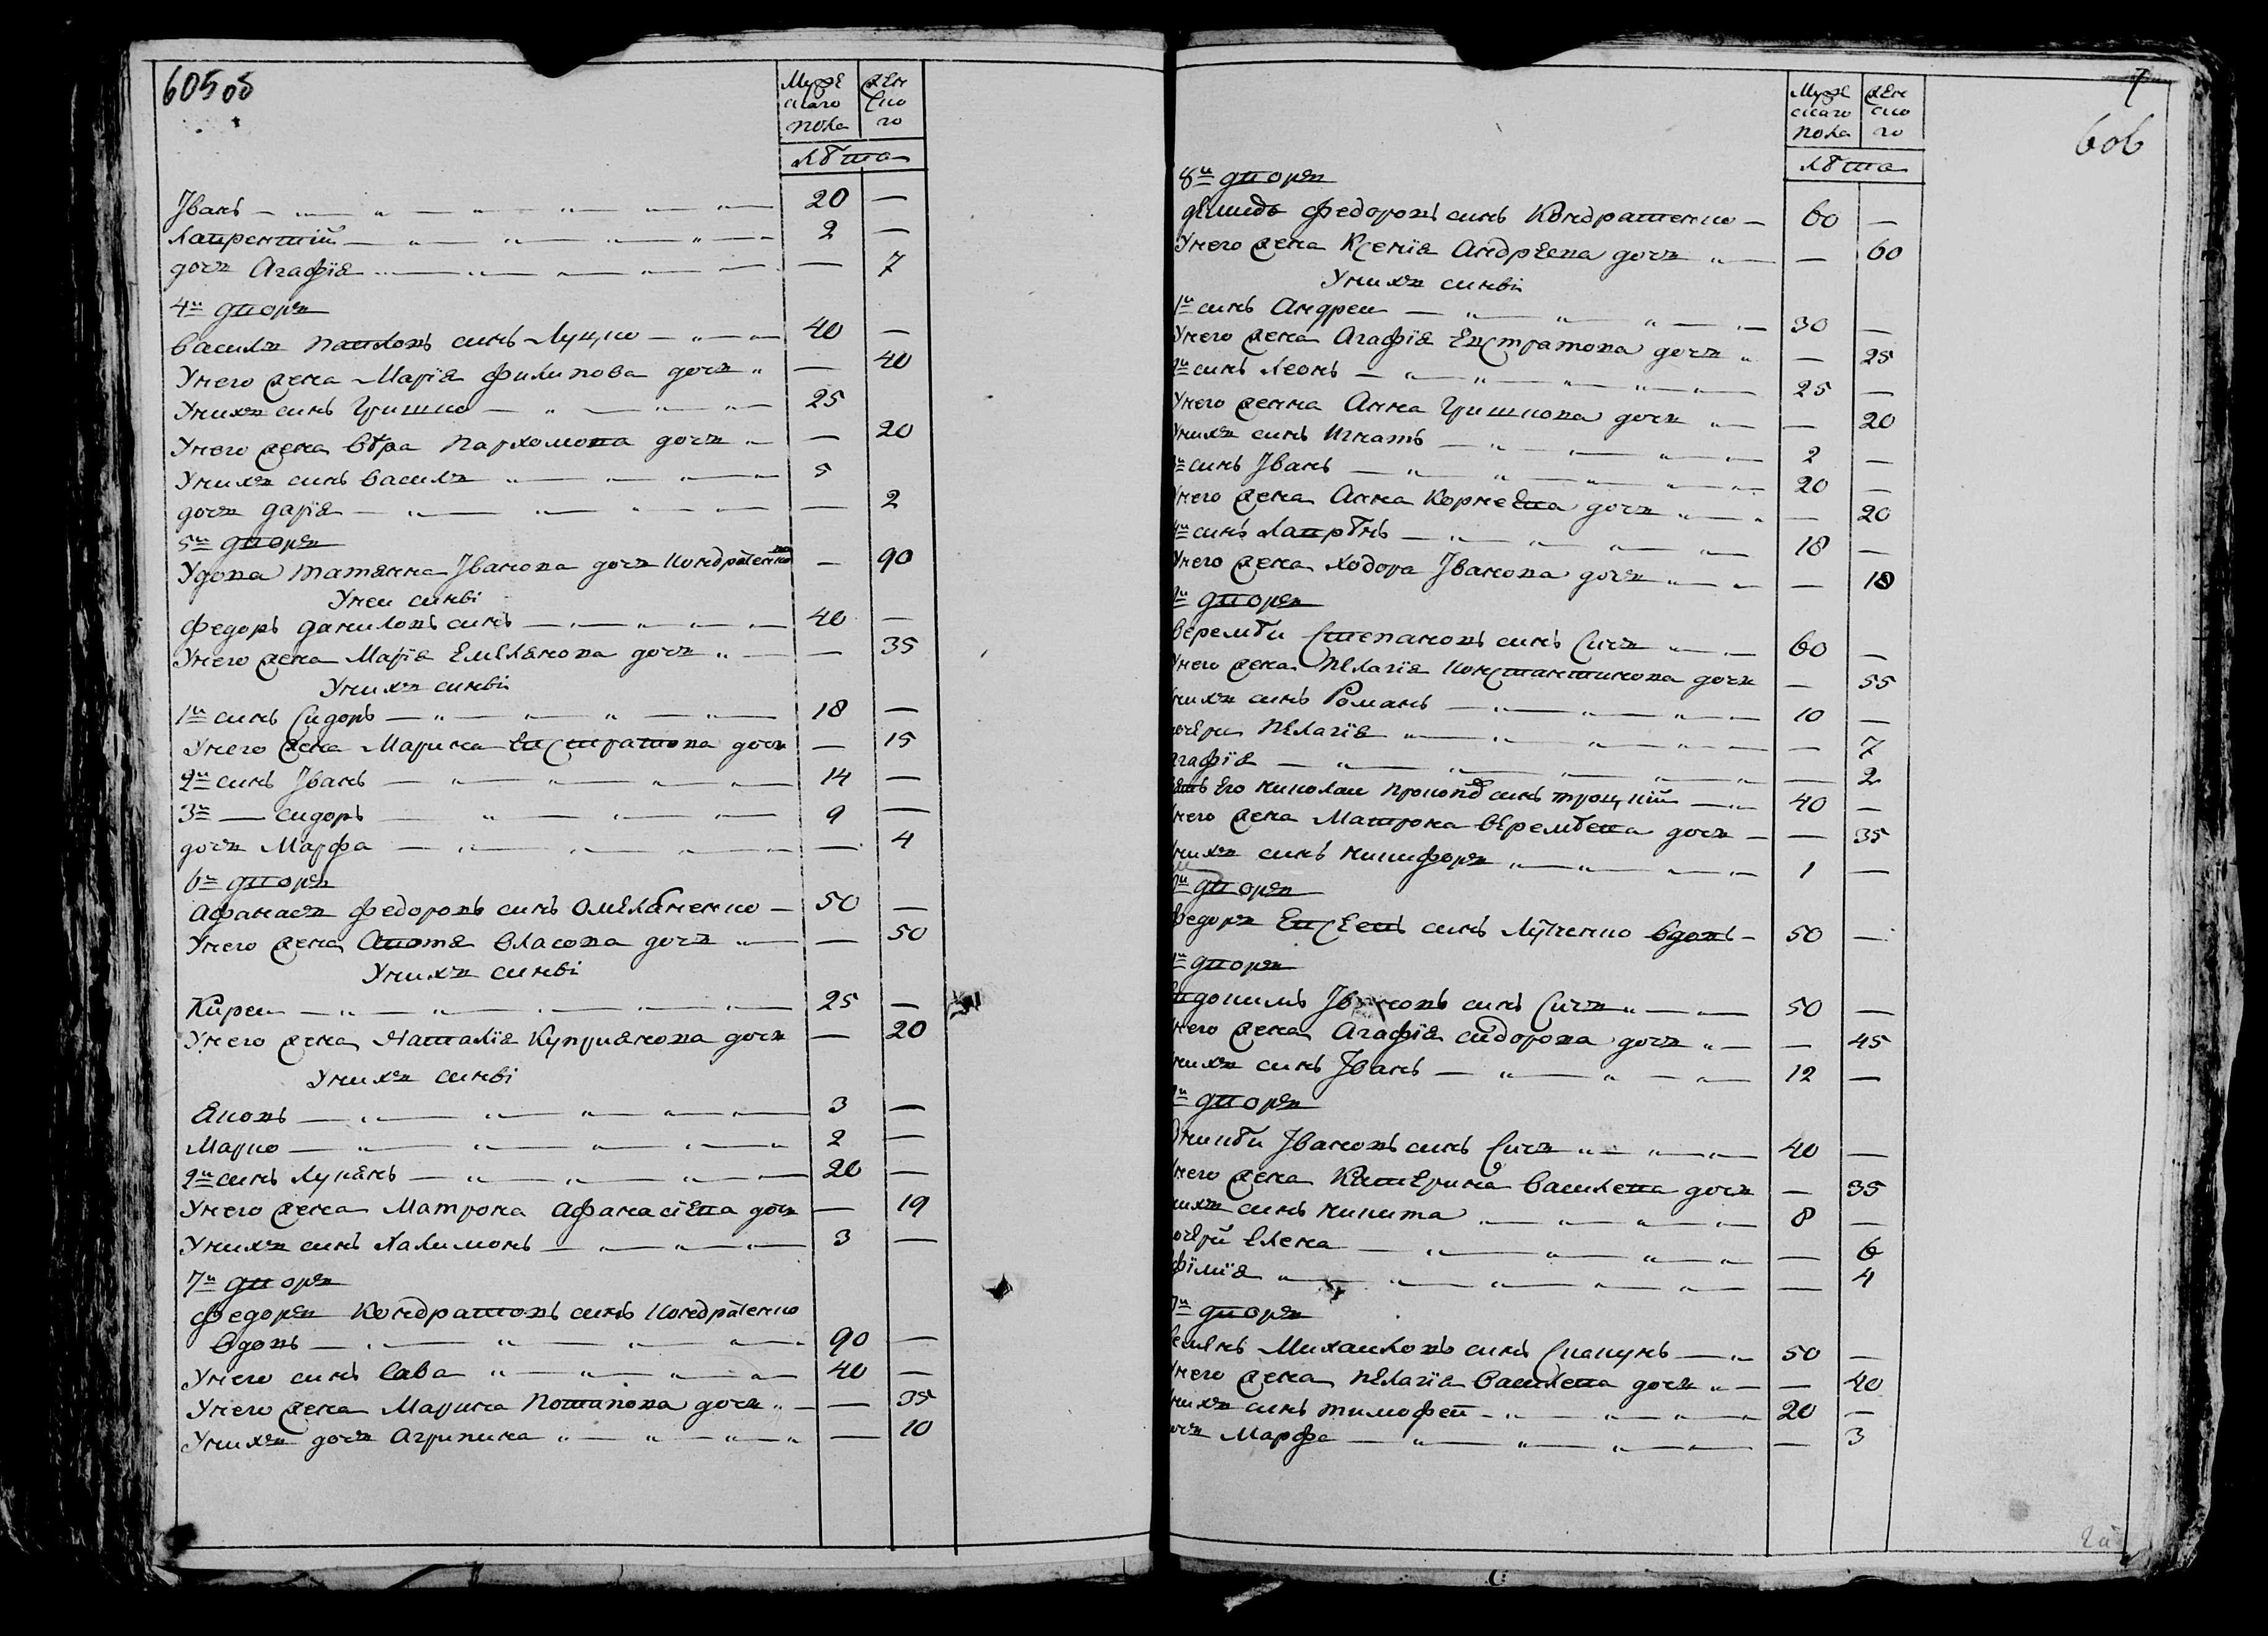 605 об
Мужескаго пола
Женского
лѣта
Іванъ 20 —
Лаврентій 2 —
дочъ Агафія — 7
4й дворъ
Василъ Павловъ синъ Луцко 40 —
У него жена Марія Филипова дочъ — 40
У нихъ синъ Гришко 25
У него жена Вѣра Пархомова дочъ — 20
У нихъ синъ Василъ 5
дочъ Дарія — 2
5й дворъ
Удова Татянна Іванова дочъ Кондратенкова — 90
У неи синві
Федоръ Даниловъ синъ 40 —
У него жена Марія Емеляновa дочъ — 35
У нихъ синві
1й синъ Сидоръ 18 —
У него жена Марина Евстратова дочъ — 15
2й синъ Іванъ 14 —
3й — Сидоръ 9 —
дочъ Марфа — 4
6й дворъ
Афанасъ Федоровъ синъ Омеляненко 50 —
У него жена Власова дочъ — 50
У нихъ синві
Кирей 25 —
У него жена Наталія Куприянова дочъ — 20
У нихъ синві
Яковъ 3 —
Марко 2 —
2й синъ Лукянъ 20 —
У него жена Матрона Афанасіева дочъ — 19
У нихъ синъ Халимонъ 3 —
7й дворъ
Федоръ Кондратовъ синъ Кондратенко
вдовъ 90 —
У него синъ Сава 40 —
У него жена Марина Потапова дочъ — 35
У нихъ дочъ Агрипина — 10
7
606
Мужескаго пола
Женского
лѣта
8й дворъ
Демидъ Федоровъ синъ Кондратенко 60 —
У него жена Ксенія Андреева дочъ — 60
У нихъ синві
1й синъ Андреи 30 —
У него жена Агафія Евстратова дочъ — 25
2й синъ Леонъ 25 —
У него женна Анна Гришкова дочъ — 20
У нихъ синъ Игнатъ 2 —
й синъ Іванъ 20 —
У него жена Анна Корнеева дочъ — 20
4й синъ Лаврѣнъ 18 —
У него жена Ходора Іванова дочъ — 18
й дворъ
Веремѣи Степановъ синъ Сичъ 60 —
У него жена Пелагія Константинова дочъ — 55
У нихъ синъ Романъ 10 —
дочери Пелагія — 7
Агафія — 2
зять его Николаи Прокопов синъ Троцкій 40 —
У него жена Матрона Веремѣева дочъ — 35
У нихъ синъ Никифоръ 1 —
й дворъ
Федоръ Евсеевъ синъ Лученко вдовъ 50 —
й дворъ
Евдокимъ Івановъ синъ Сичъ 50 —
У него жена Агафія Сидорова дочъ — 45
У нихъ синъ Іванъ 12 —
й дворъ
Івановъ синъ Сичъ 40 —
У него жена Катерина Василева дочъ — 35
У нихъ синъ Никита 8 —
дочерй Елена — 6
фімія — 4
й дворъ
Михаиловъ синъ 50 —
У него жена Пелагія Василева дочъ — 40
У нихъ синъ Тимофей 20 —
дочъ Марфа — 3